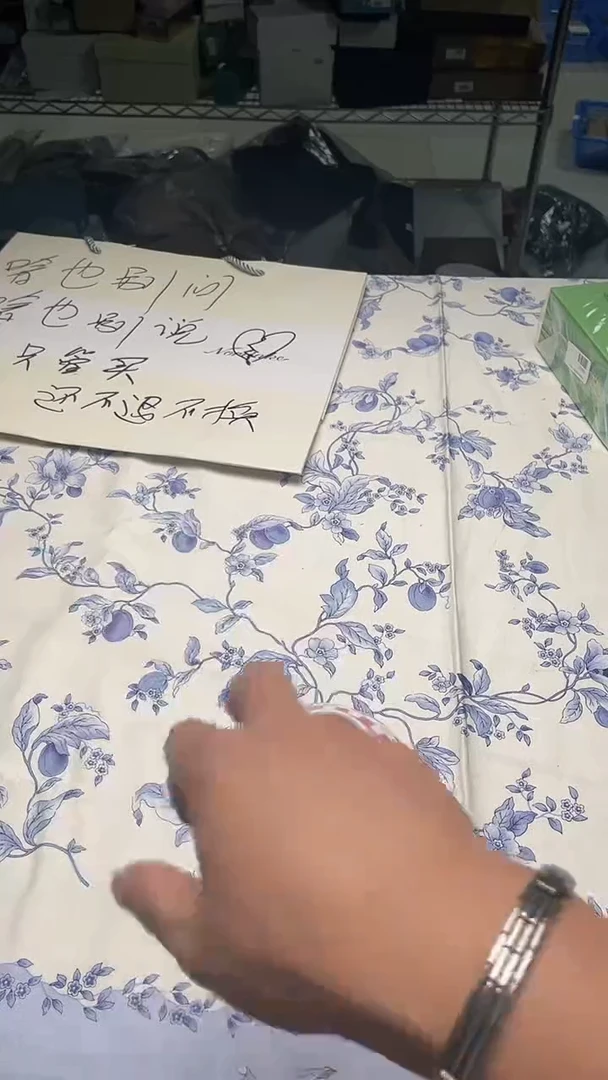 管也别问
管也别说
只管买
还不退不换